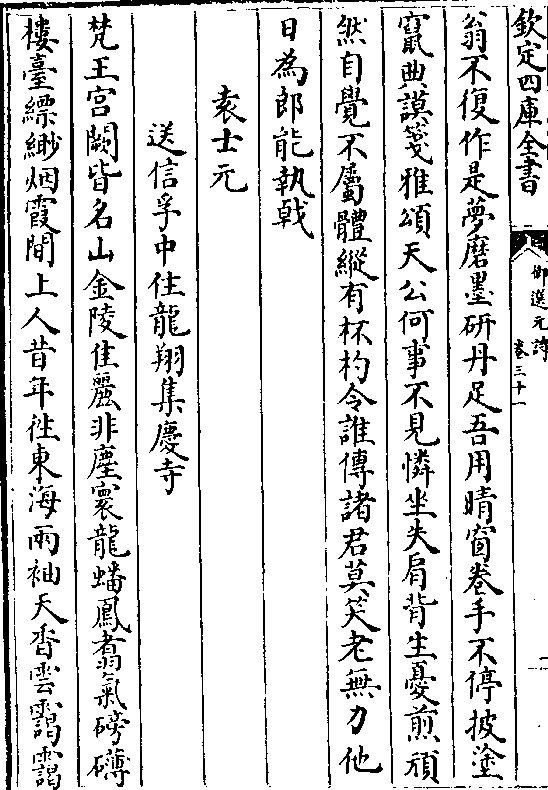 欽定四庫全書
御選元詩
卷三十一
翁不復作是夢磨墨研丹足吾用晴窗卷手不停披塗
竄典謨箋雅頌天公何事不見憐坐失肩背生憂煎頑
然自覺不屬體縱有杯杓令誰傳諸君莫笑老無力他
日為郎能執戟
袁士元
送信孚中住龍翔集慶寺
梵王宫闕皆名山金陵佳麗非塵寰龍蟠鳳翥氣磅礴
樓臺縹緲烟霞間上人昔年徃東海兩袖天香雲靄靄